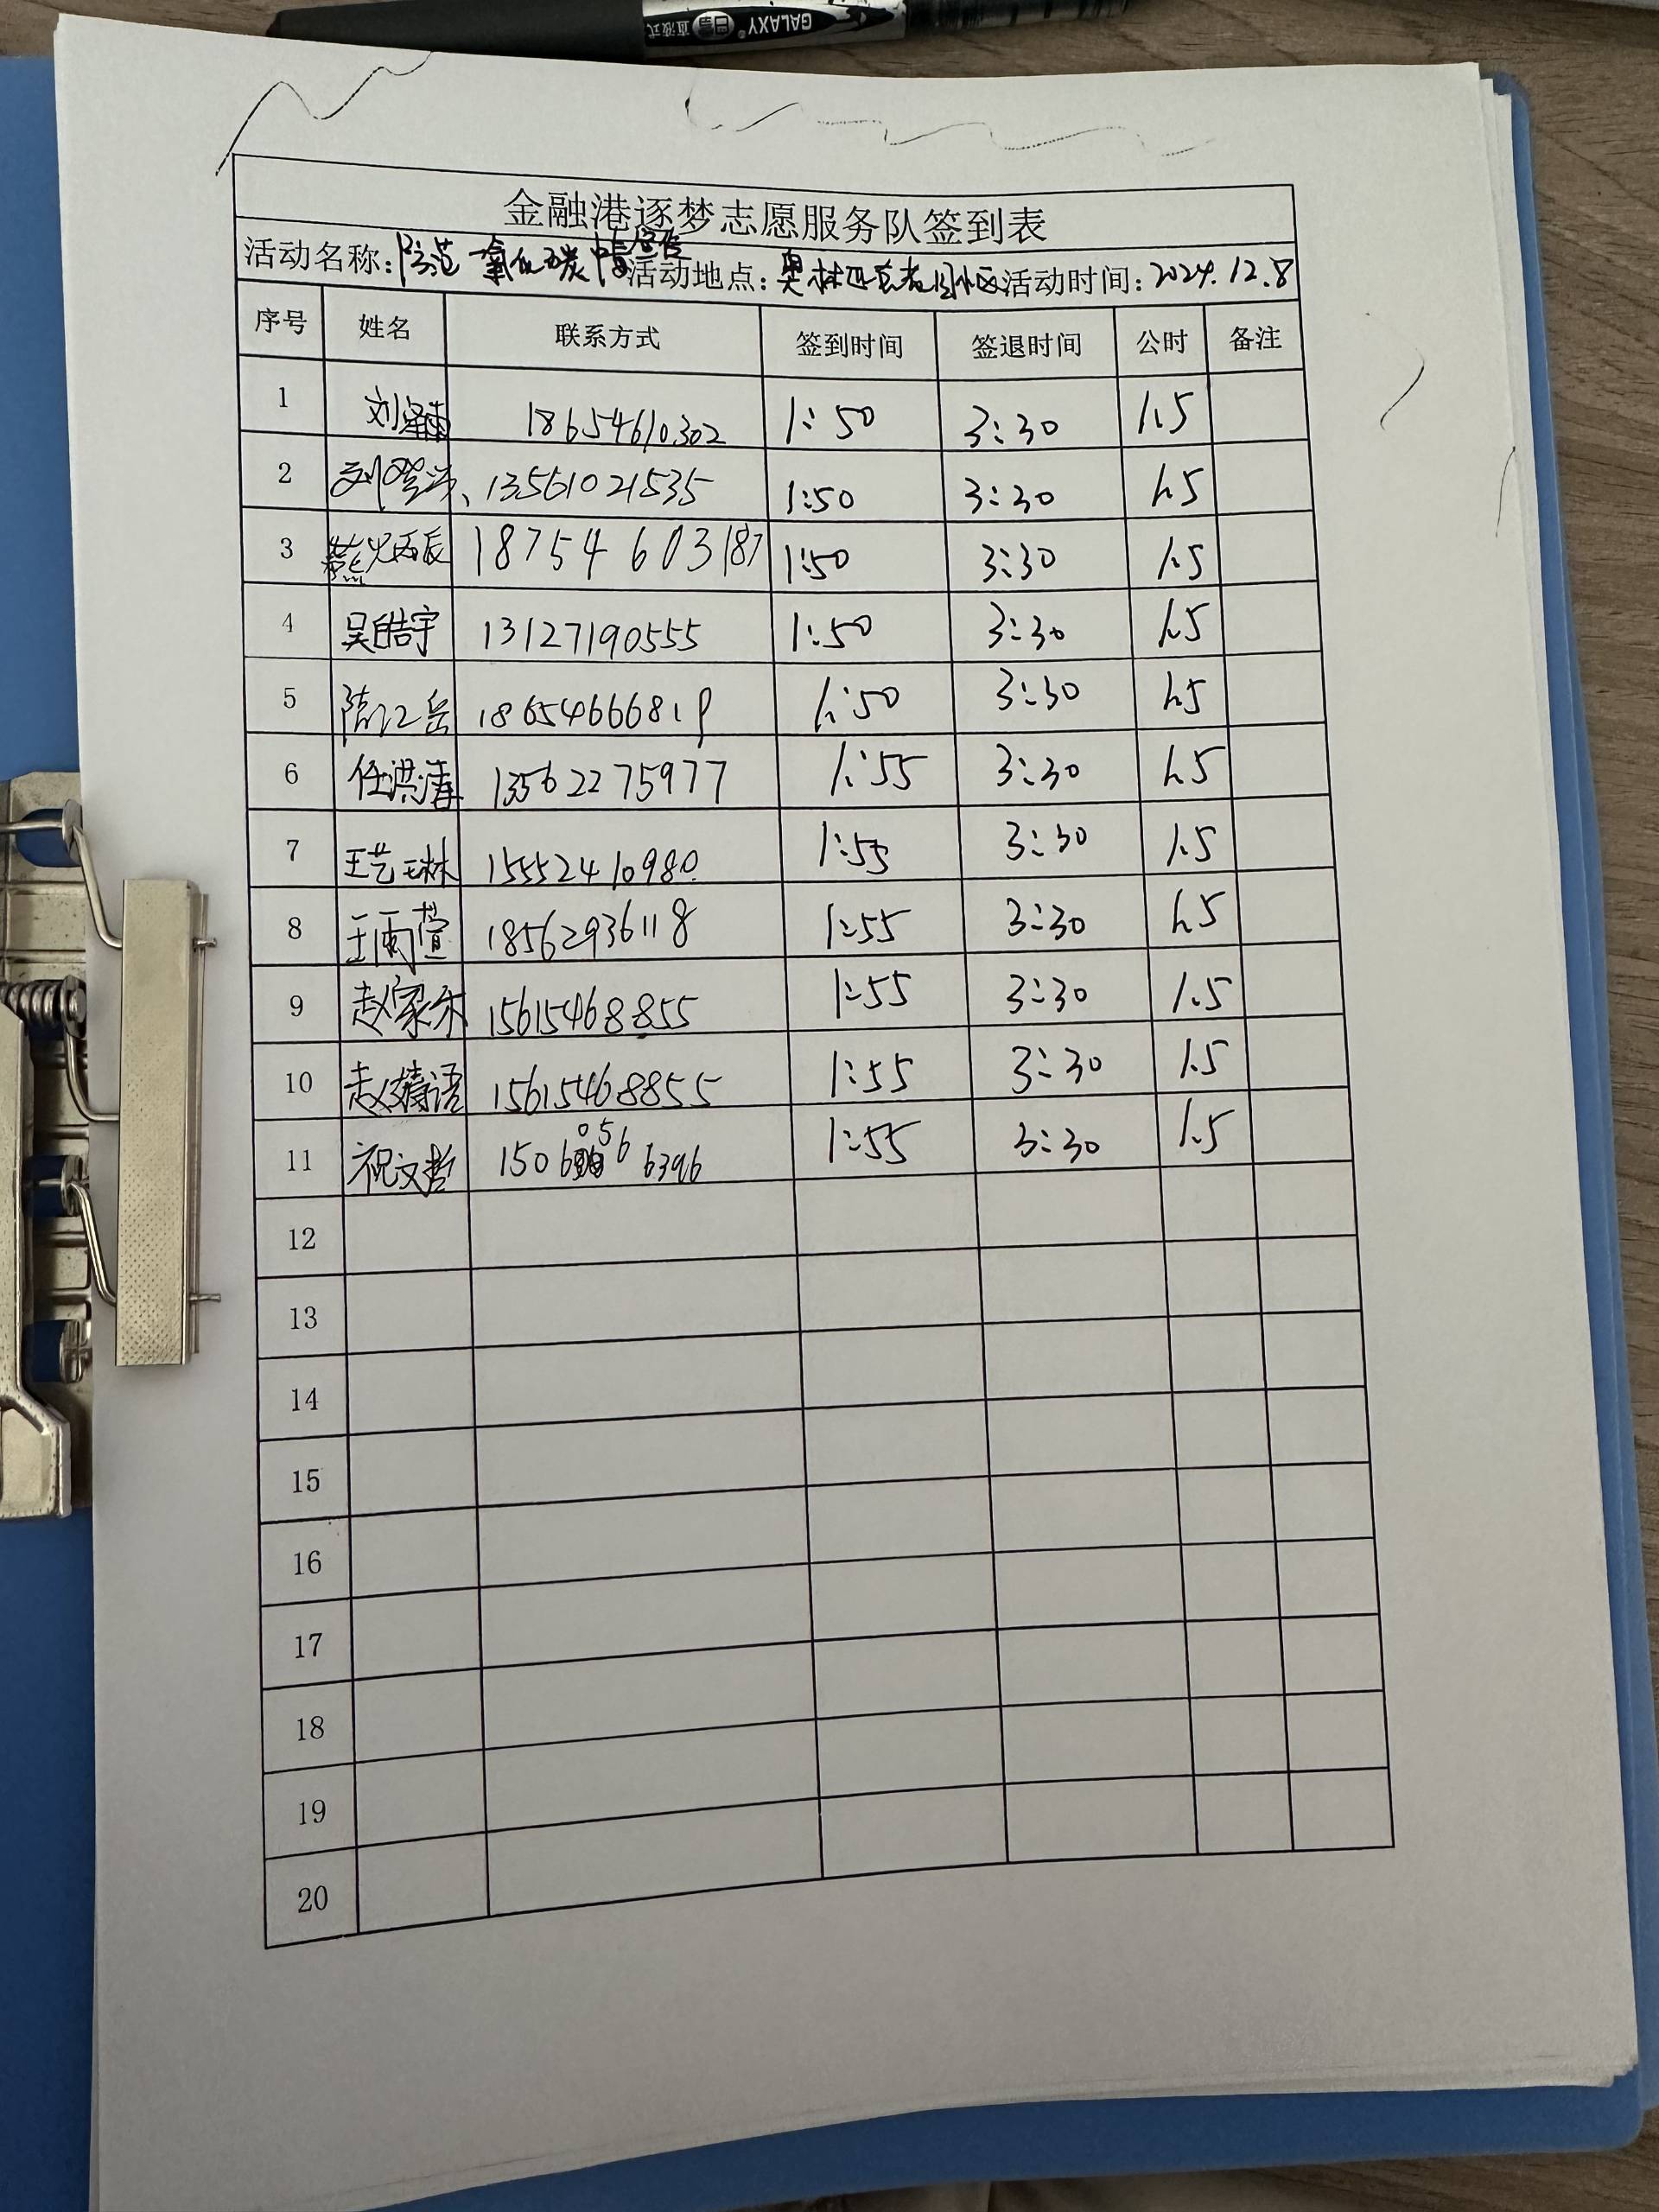 GALAXY 直液式
金融港逐梦志愿服务队签到表
活动名称:防范一氧化碳中毒宣传 活动地点:奥林匹克花园小区 活动时间:2024.12.8
序号 姓名 联系方式 签到时间 签退时间 公时 备注
1 刘泽 18654610302 1:50 3:30 1.5
2 刘 13561021535 1:50 3:30 1.5
3 燕 辰 18754603187 1:50 3:30 1.5
4 吴皓宇 13127190555 1:50 3:30 1.5
5 江岳 1865466681 1:50 3:30 1.5
6 任洪 13562275977 1:55 3:30 1.5
7 王艺琳 15552410980 1:55 3:30 1.5
8 王雨萱 18562936118 1:55 3:30 1.5
9 赵家禾 15615468855 1:55 3:30 1.5
10 赵婧语 15615468855 1:55 3:30 1.5
11 祝文哲 15060566396 1:55 3:30 1.5
12
13
14
15
16
17
18
19
20